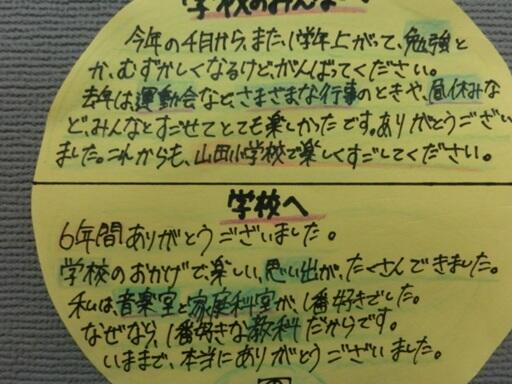 学校のみんなへ
今年の4月から、また、1学年上がって、勉強と
か、むずかしくなるけど、がんばってください。
去年は運動会など、さまざまな行事のときや、昼休みな
ど、みんなとすごせてとても楽しかったです。ありがとうござい
ました。これからも、山田小学校で楽しくすごしてください。
学校へ
6年間ありがとうございました。
学校のおかげで、楽しい、思い出が、たくさんできました。
私は、音楽室と家庭科室が、1番好きでした。
なぜなら、1番好きな教科だからです。
いままで、本当にありがとうございました。